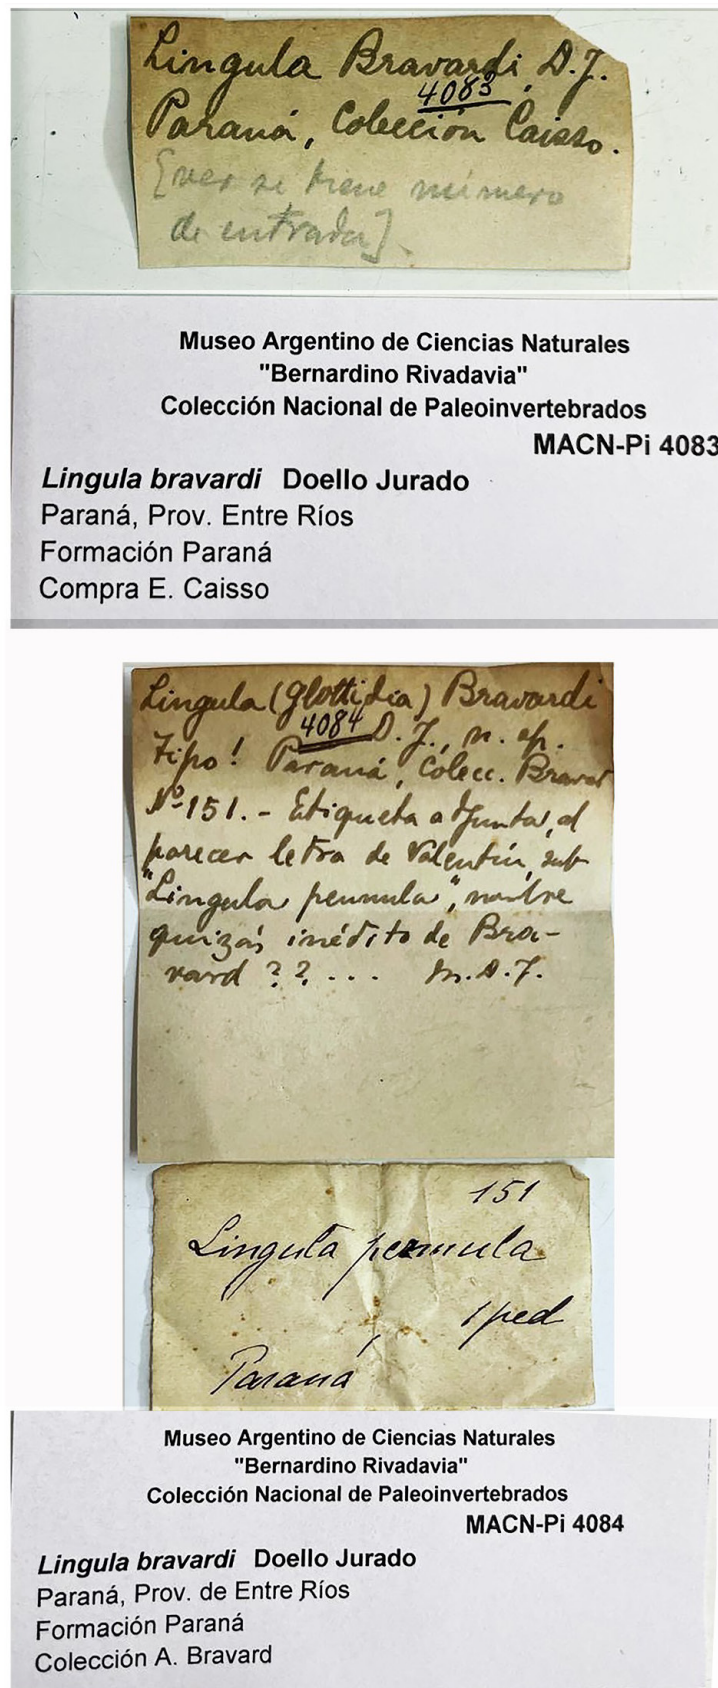 Lingula Bravardi, D. J.
4083
Paraná, Colección Caisso.
[ver si tiene número
de entrada].
Museo Argentino de Ciencias Naturales
"Bernardino Rivadavia"
Colección Nacional de Paleoinvertebrados
MACN-Pi 4083
Lingula bravardi Doello Jurado
Paraná, Prov. Entre Ríos
Formación Paraná
Compra E. Caisso
Lingula (Glottidia) Bravardi
4084 D. J., n. sp.
Tipo! Paraná, Colecc. Bravard
Nº 151. - Etiqueta adjunta, al
parecer letra de Valentín, sub
"Lingula pennula", nombre
quizás inédito de Bra-
vard ? ? . . . M. D. J.
151
Lingula pennula
1 ped
Paraná
Museo Argentino de Ciencias Naturales
"Bernardino Rivadavia"
Colección Nacional de Paleoinvertebrados
MACN-Pi 4084
Lingula bravardi Doello Jurado
Paraná, Prov. de Entre Ríos
Formación Paraná
Colección A. Bravard